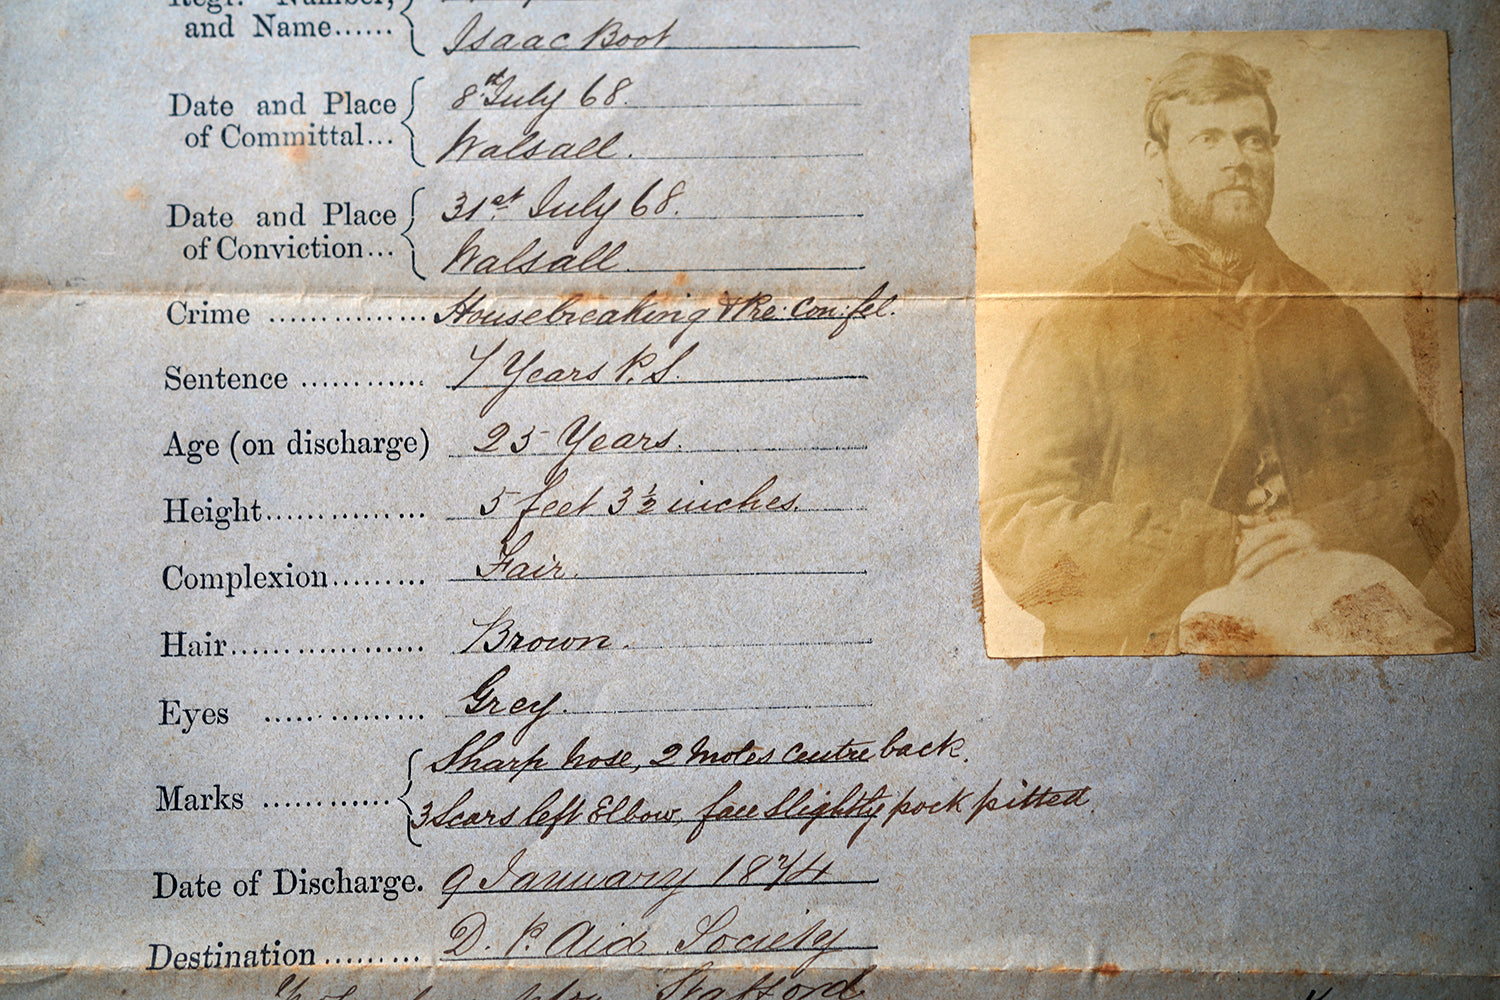 Regt. Number,
and Name...... Isaac Boot
Date and Place 8th July 68.
of Committal... Walsall.
Date and Place 31st July 68.
of Conviction... Walsall.
Crime ................ Housebreaking & Pre: Con: fel.
Sentence ............ 7 Years P. S.
Age (on discharge) 25 Years.
Height............... 5 feet 3½ inches.
Complexion......... Fair.
Hair.................. Brown.
Eyes ............... Grey.
Sharp nose, 2 Moles centre back.
Marks ............ 3 Scars left Elbow, face slightly pock pitted.
Date of Discharge. 9 January 1874
Destination ......... D. P. Aid Society
Stafford